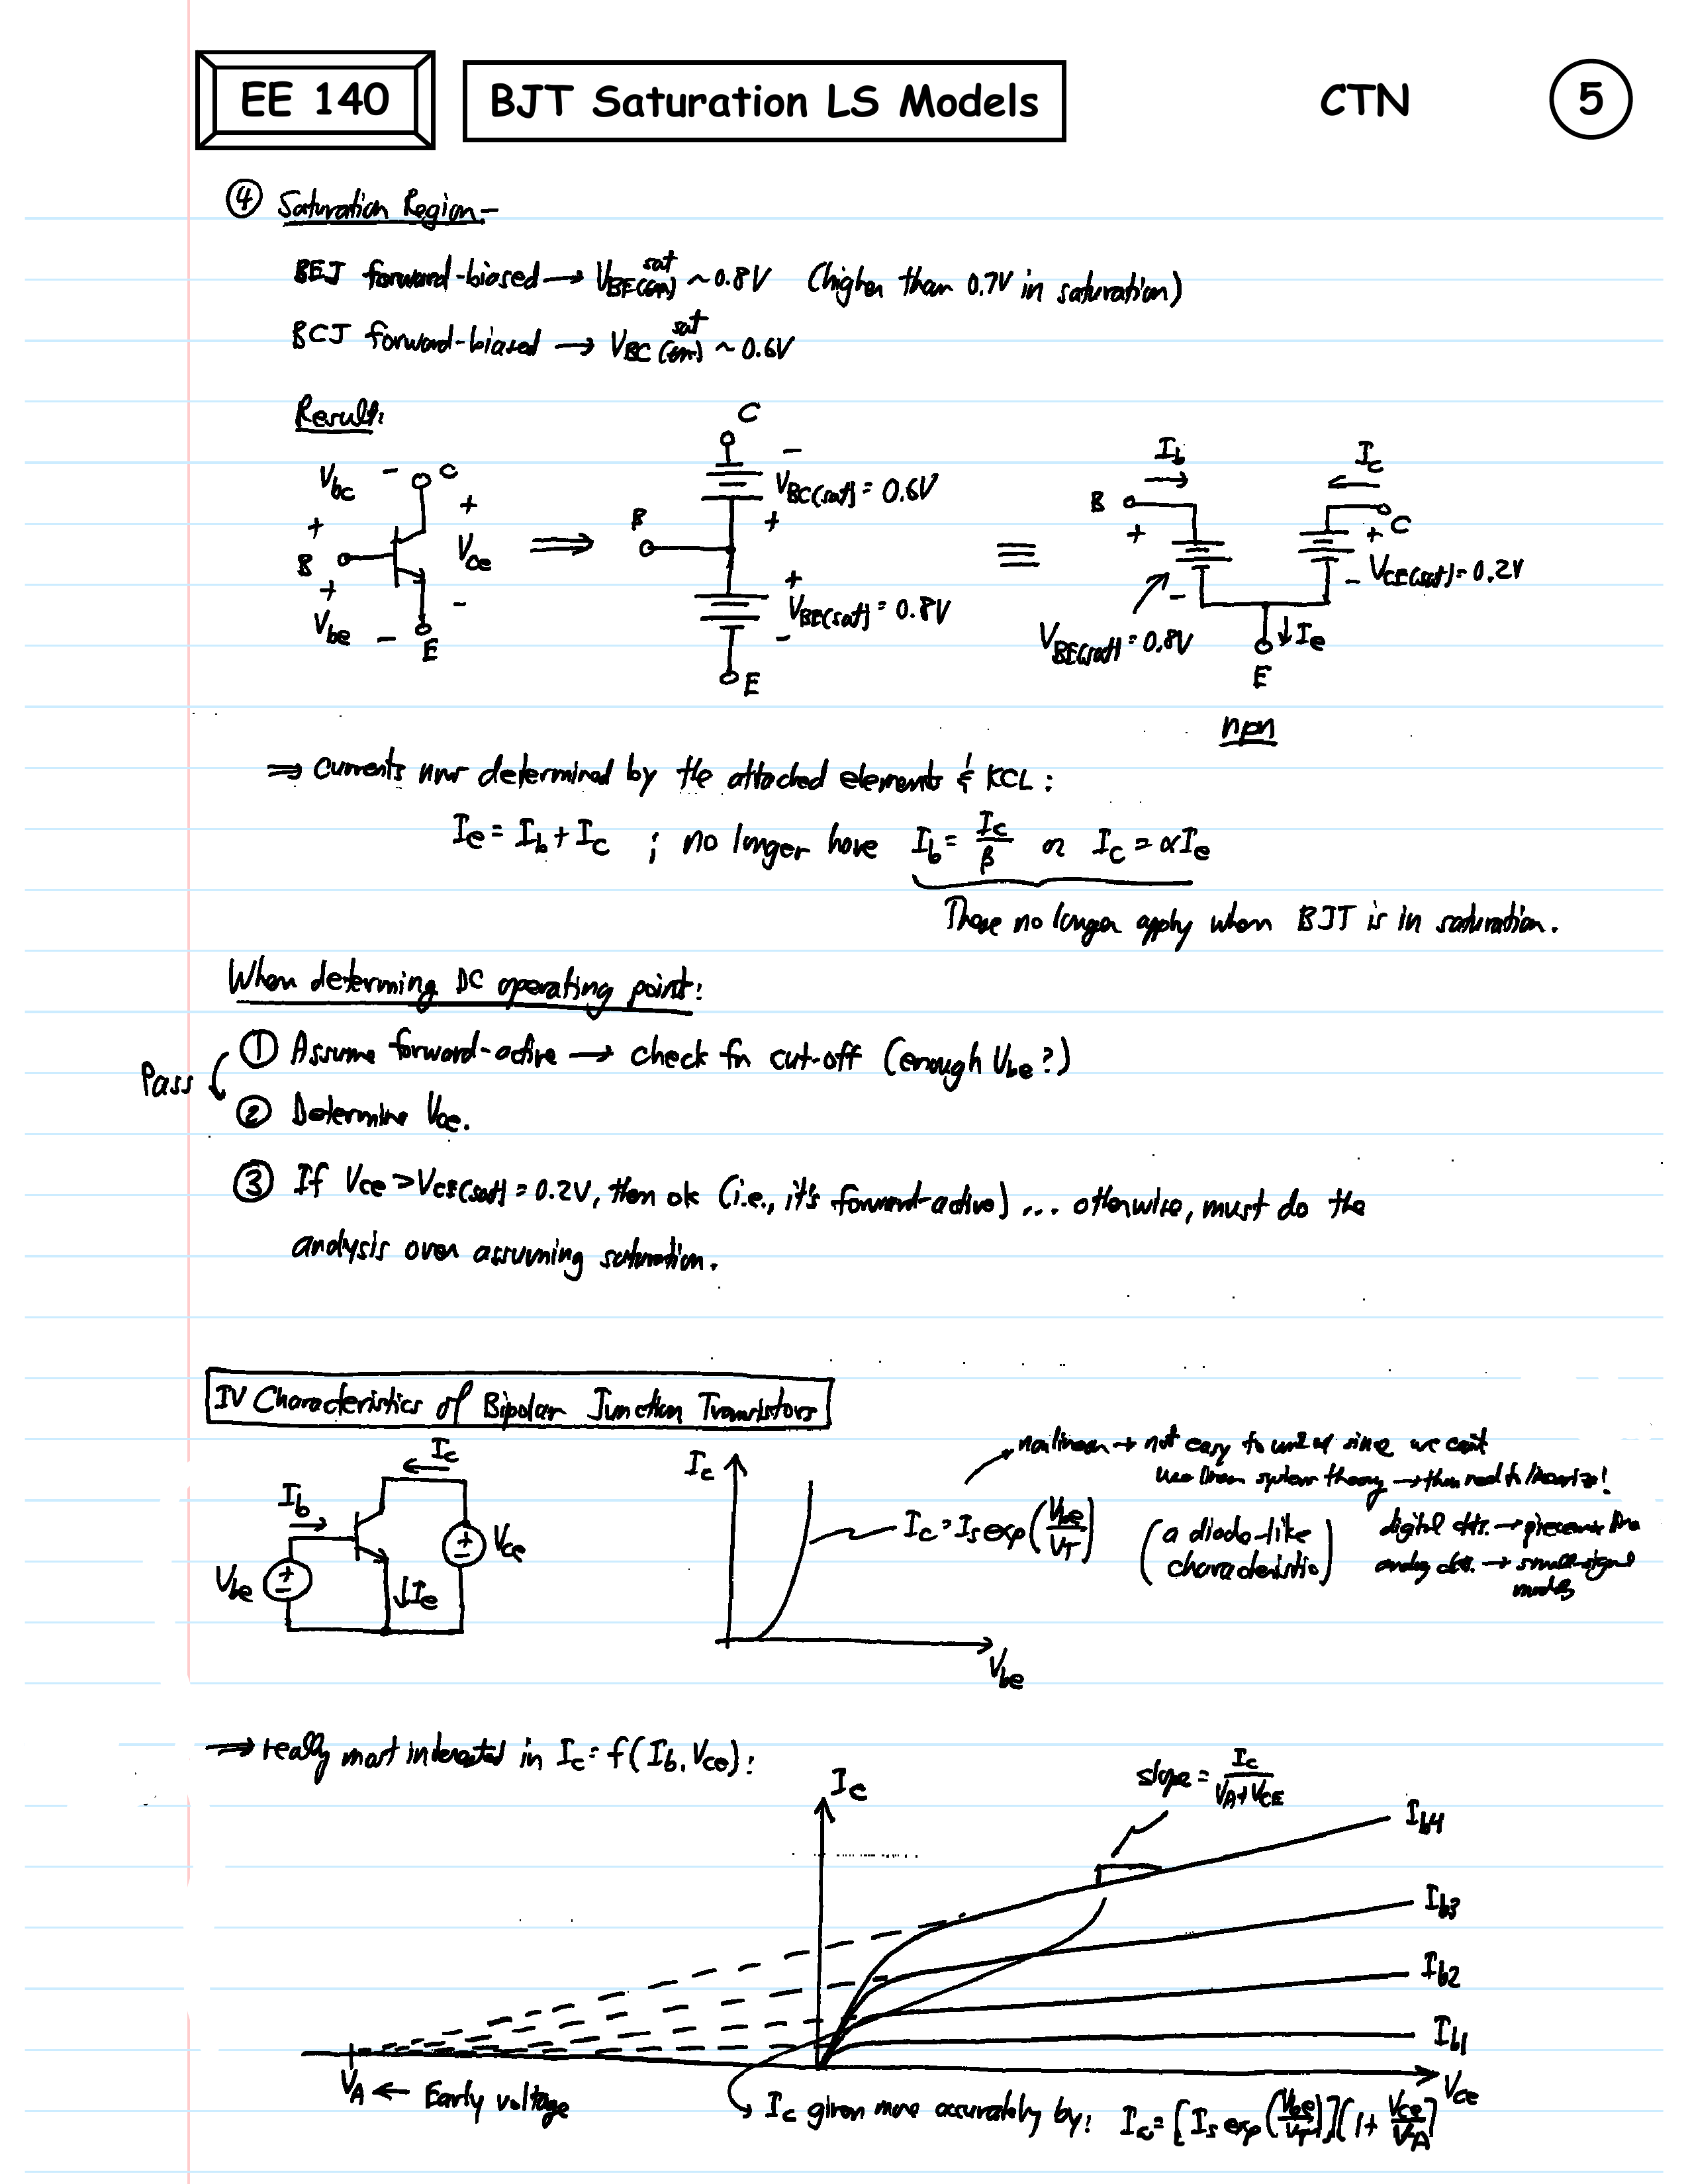 EE 140
BJT Saturation LS Models
CTN
5
④ Saturation Region-
BEJ forward-biased → V_BE(sat) ~ 0.8V (higher than 0.7V in saturation)
BCJ forward-biased → V_BC(sat) ~ 0.6V
Result:
V_bc - C +
+ B V_ce
+ V_be - E -
⇒
C
- V_BC(sat) = 0.6V +
B
+ V_BE(sat) = 0.8V -
E
≡
I_b I_c
B + - C + -
V_CE(sat) = 0.2V
V_BE(sat) = 0.8V
↓ I_e
E
npn
⇒ currents now determined by the attached elements & KCL:
I_e = I_b + I_c ; no longer have I_b = I_c/β or I_c = αI_e
These no longer apply when BJT is in saturation.
When determing DC operating point:
① Assume forward-active → check for cut-off (enough V_be?)
Pass
② Determine V_ce.
③ If V_ce > V_CE(sat) = 0.2V, then ok (i.e., it's forward-active) ... otherwise, must do the
analysis over assuming saturation.
IV Characteristics of Bipolar Junction Transistors
I_c
I_b
V_be + -
V_ce + -
↓ I_e
I_c
V_be
I_c = I_s exp(V_be/V_T)
(a diode-like characteristic)
nonlinear → not easy to work w/ since we can't
use linear system theory → thus need to linearize!
digital ckts. → piecewise
analog ckts. → small-signal
models
⇒ really most interested in I_c = f(I_b, V_ce):
I_c
slope = I_c/(V_A + V_CE)
I_b4
I_b3
I_b2
I_b1
V_ce
V_A ← Early voltage
I_c given more accurately by: I_c = [I_s exp(V_be/V_T)](1 + V_ce/V_A)